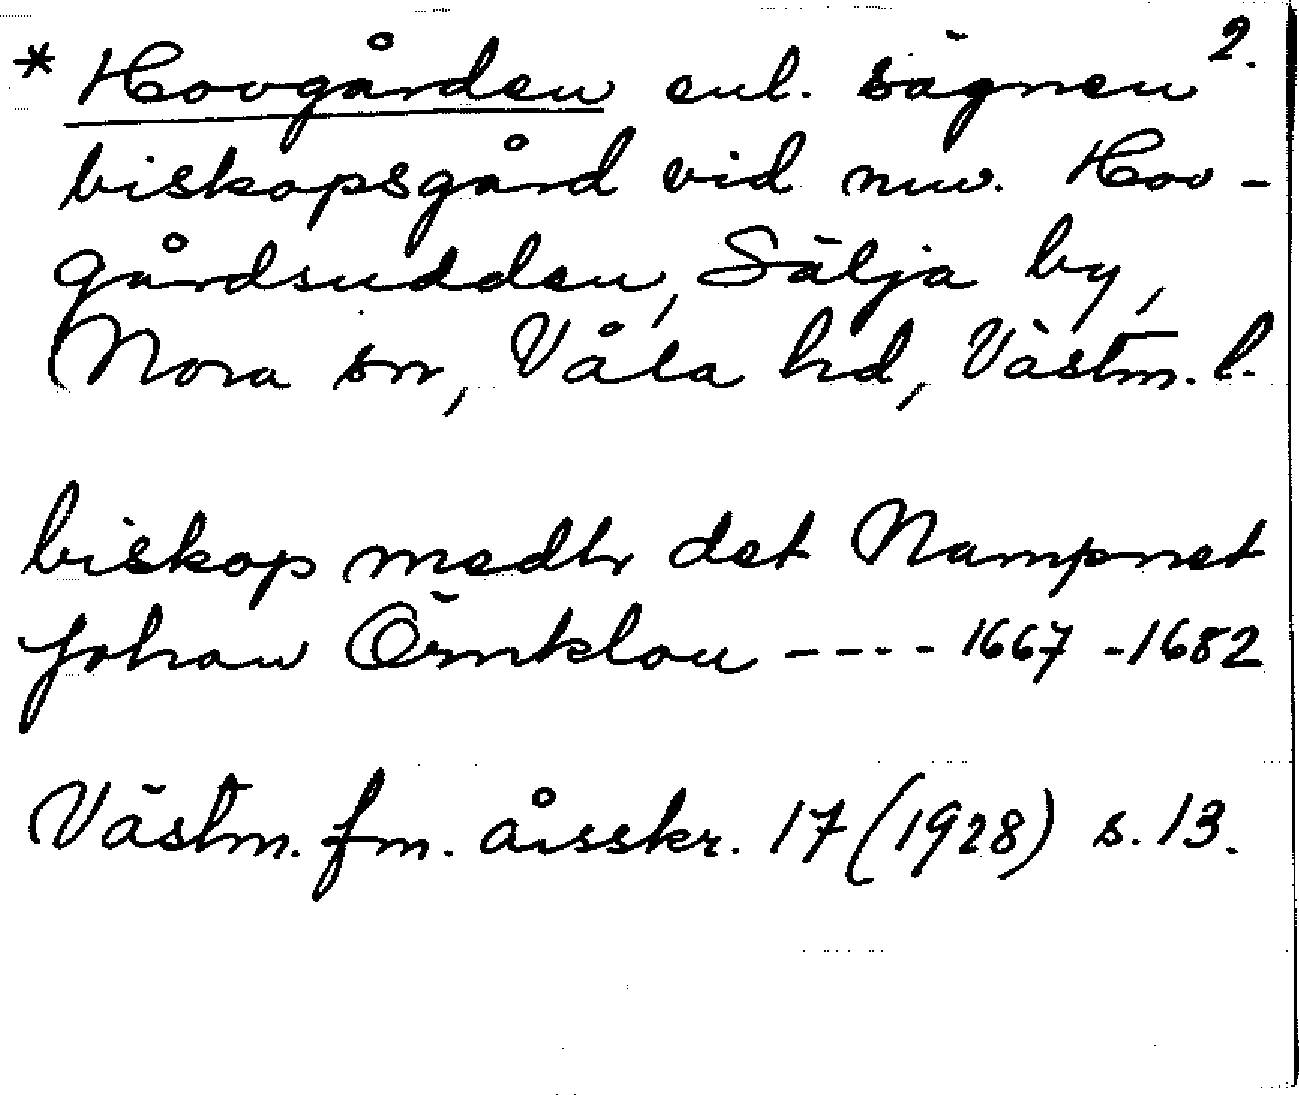 2.
* Hovgården enl. sägnen
biskopsgård vid nuv. Hov-
gårdsudden, Sälja by,
Nora sn, Våla hd, Västm. l.
biskop medh det Nampnet
Johan Örnklou ---- 1667 -1682
Västm. fm. årsskr. 17 (1928) s. 13.